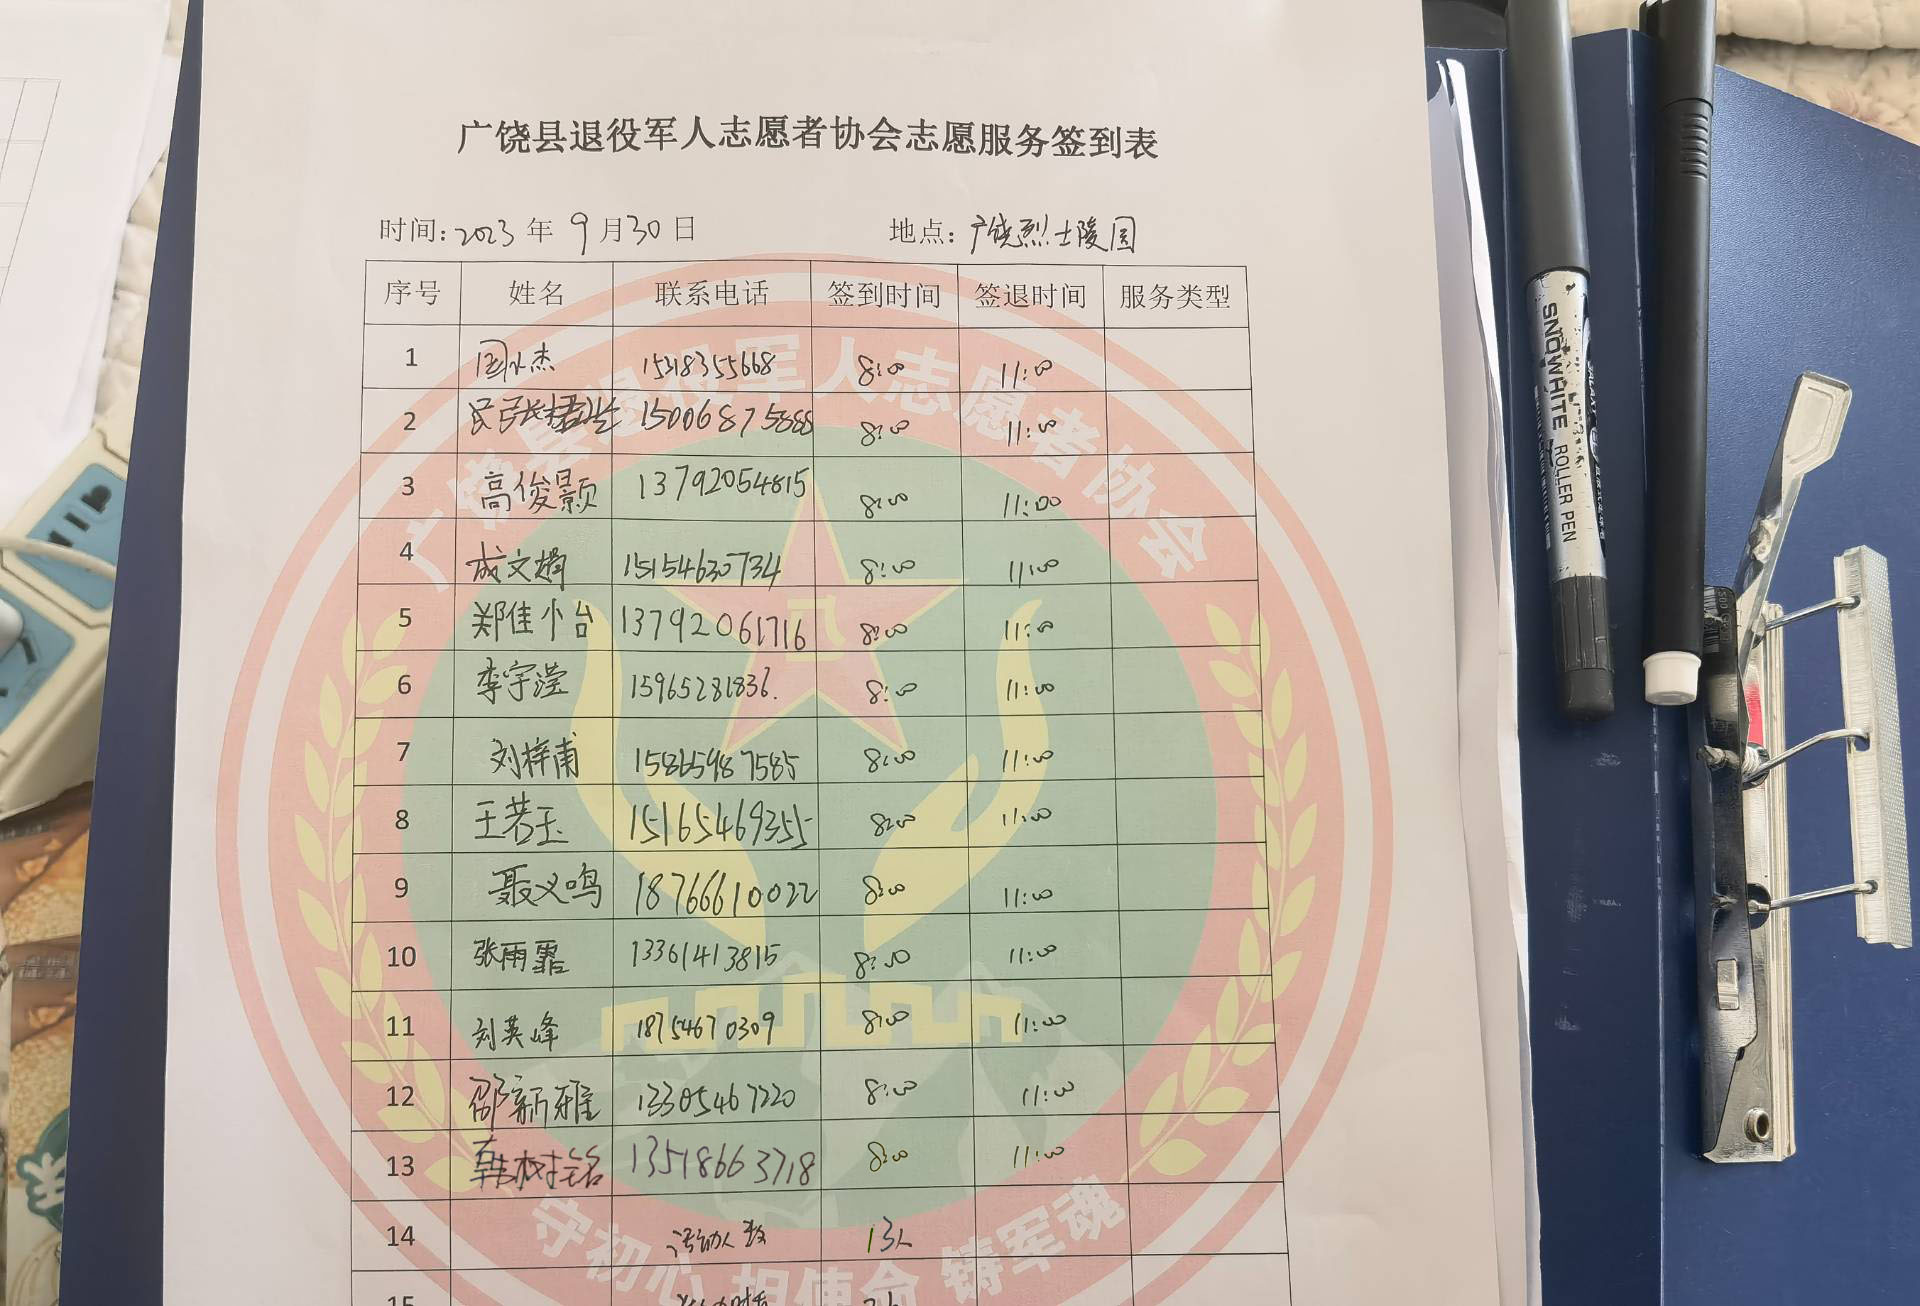 广饶县退役军人志愿者协会志愿服务签到表
时间:2023年 9月30日 地点:广饶烈士陵园
序号 姓名 联系电话 签到时间 签退时间 服务类型
1 国小杰 15318355668 8:00 11:00
2 15006875888 8:00 11:00
3 高俊颢 13792054815 8:00 11:00
4 成文娟 15154630734 8:00 11:00
5 郑佳怡 13792061716 8:00 11:00
6 李宇滢 15965281836. 8:00 11:00
7 刘梓甫 15865987585 8:00 11:00
8 王若玉 15165469355 8:00 11:00
9 聂义鸣 18766610022 8:00 11:00
10 张雨霏 13361413815 8:00 11:00
11 刘英峰 18754670309 8:00 11:00
12 邵新雅 13305467220 8:00 11:00
13 韩树铭 13518663718 8:00 11:00
14 活动人数 13人
15
广饶县退役军人志愿者协会
守初心 担使命 铸军魂
SNOWHITE ROLLER PEN